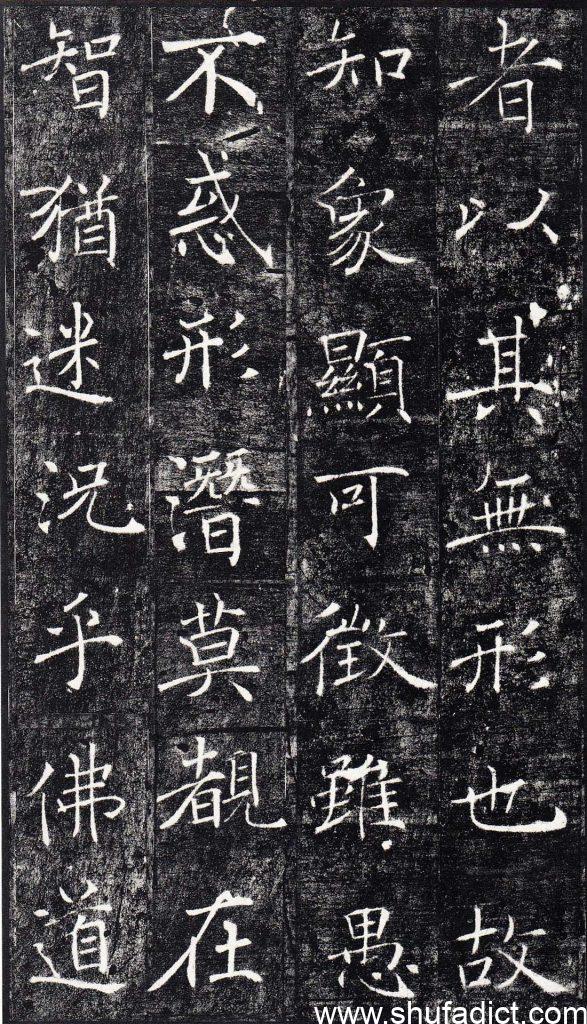 者以其無形也故
知象顯可徵雖愚
不惑形潛莫覩在
智猶迷況乎佛道
www.shufadict.com